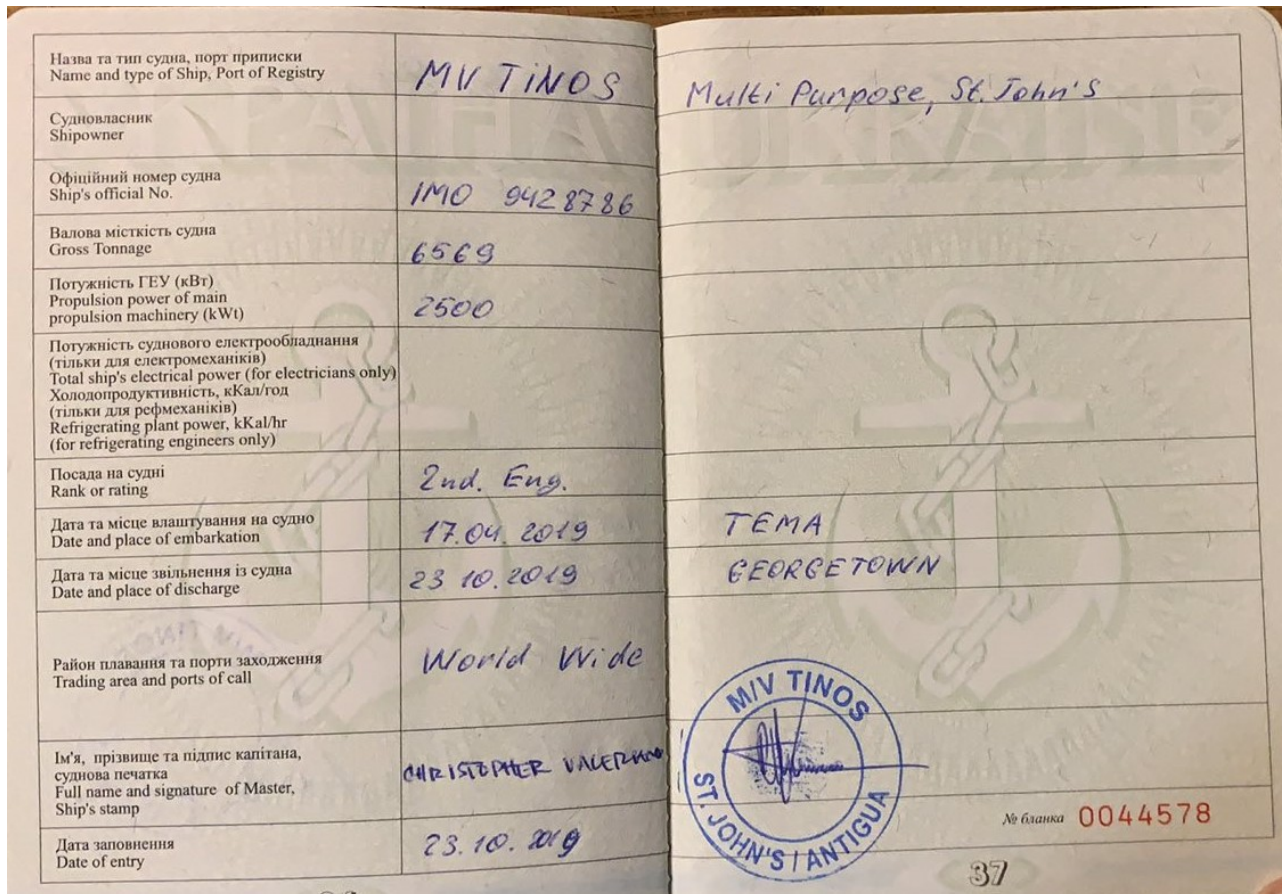 Назва та тип судна, порт приписки
Name and type of Ship, Port of Registry
MV TiNOS
Multi Purpose, St. John's
Судновласник
Shipowner
Офіційний номер судна
Ship's official No.
IMO 9428786
Валова місткість судна
Gross Tonnage
6569
Потужність ГЕУ (кВт)
Propulsion power of main
propulsion machinery (kWt)
2500
Потужність суднового електрообладнання
(тільки для електромеханіків)
Total ship's electrical power (for electricians only)
Холодопродуктивність, кКал/год
(тільки для рефмеханіків)
Refrigerating plant power, kKal/hr
(for refrigerating engineers only)
Посада на судні
Rank or rating
2nd. Eng.
Дата та місце влаштування на судно
Date and place of embarkation
17.04. 2019
TEMA
Дата та місце звільнення із судна
Date and place of discharge
23 10. 2019
GEORGETOWN
Район плавання та порти заходження
Trading area and ports of call
World Wide
Ім'я, прізвище та підпис капітана,
суднова печатка
Full name and signature of Master,
Ship's stamp
CHRISTOPHER
M/V TINOS
ST. JOHN'S / ANTIGUA
№ бланка 0044578
Дата заповнення
Date of entry
23. 10. 2019
37
UKRAINE